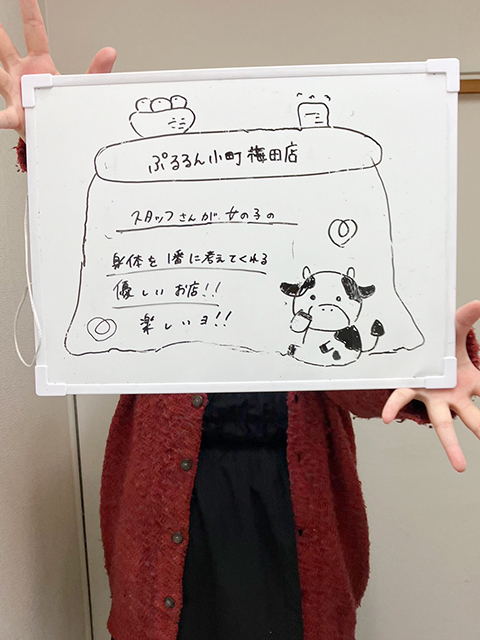 ぷるるん小町梅田店
スタッフさんが女の子の
身体を1番に考えてくれる
優しいお店!!
楽しいヨ!!